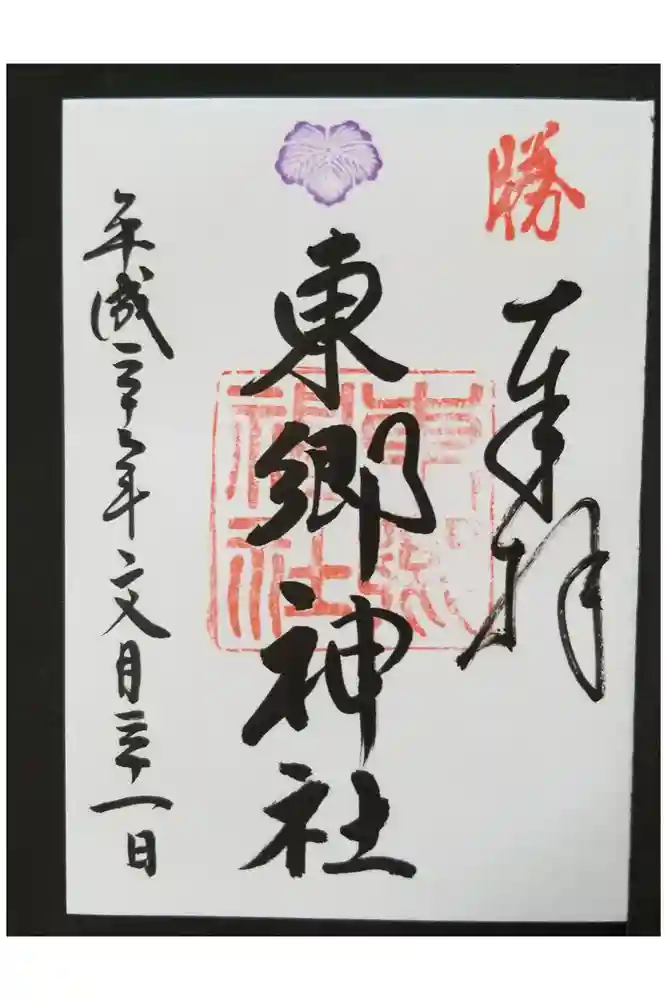 勝
奉拝
東郷神社
東郷神社
平成二十七年文月三十一日